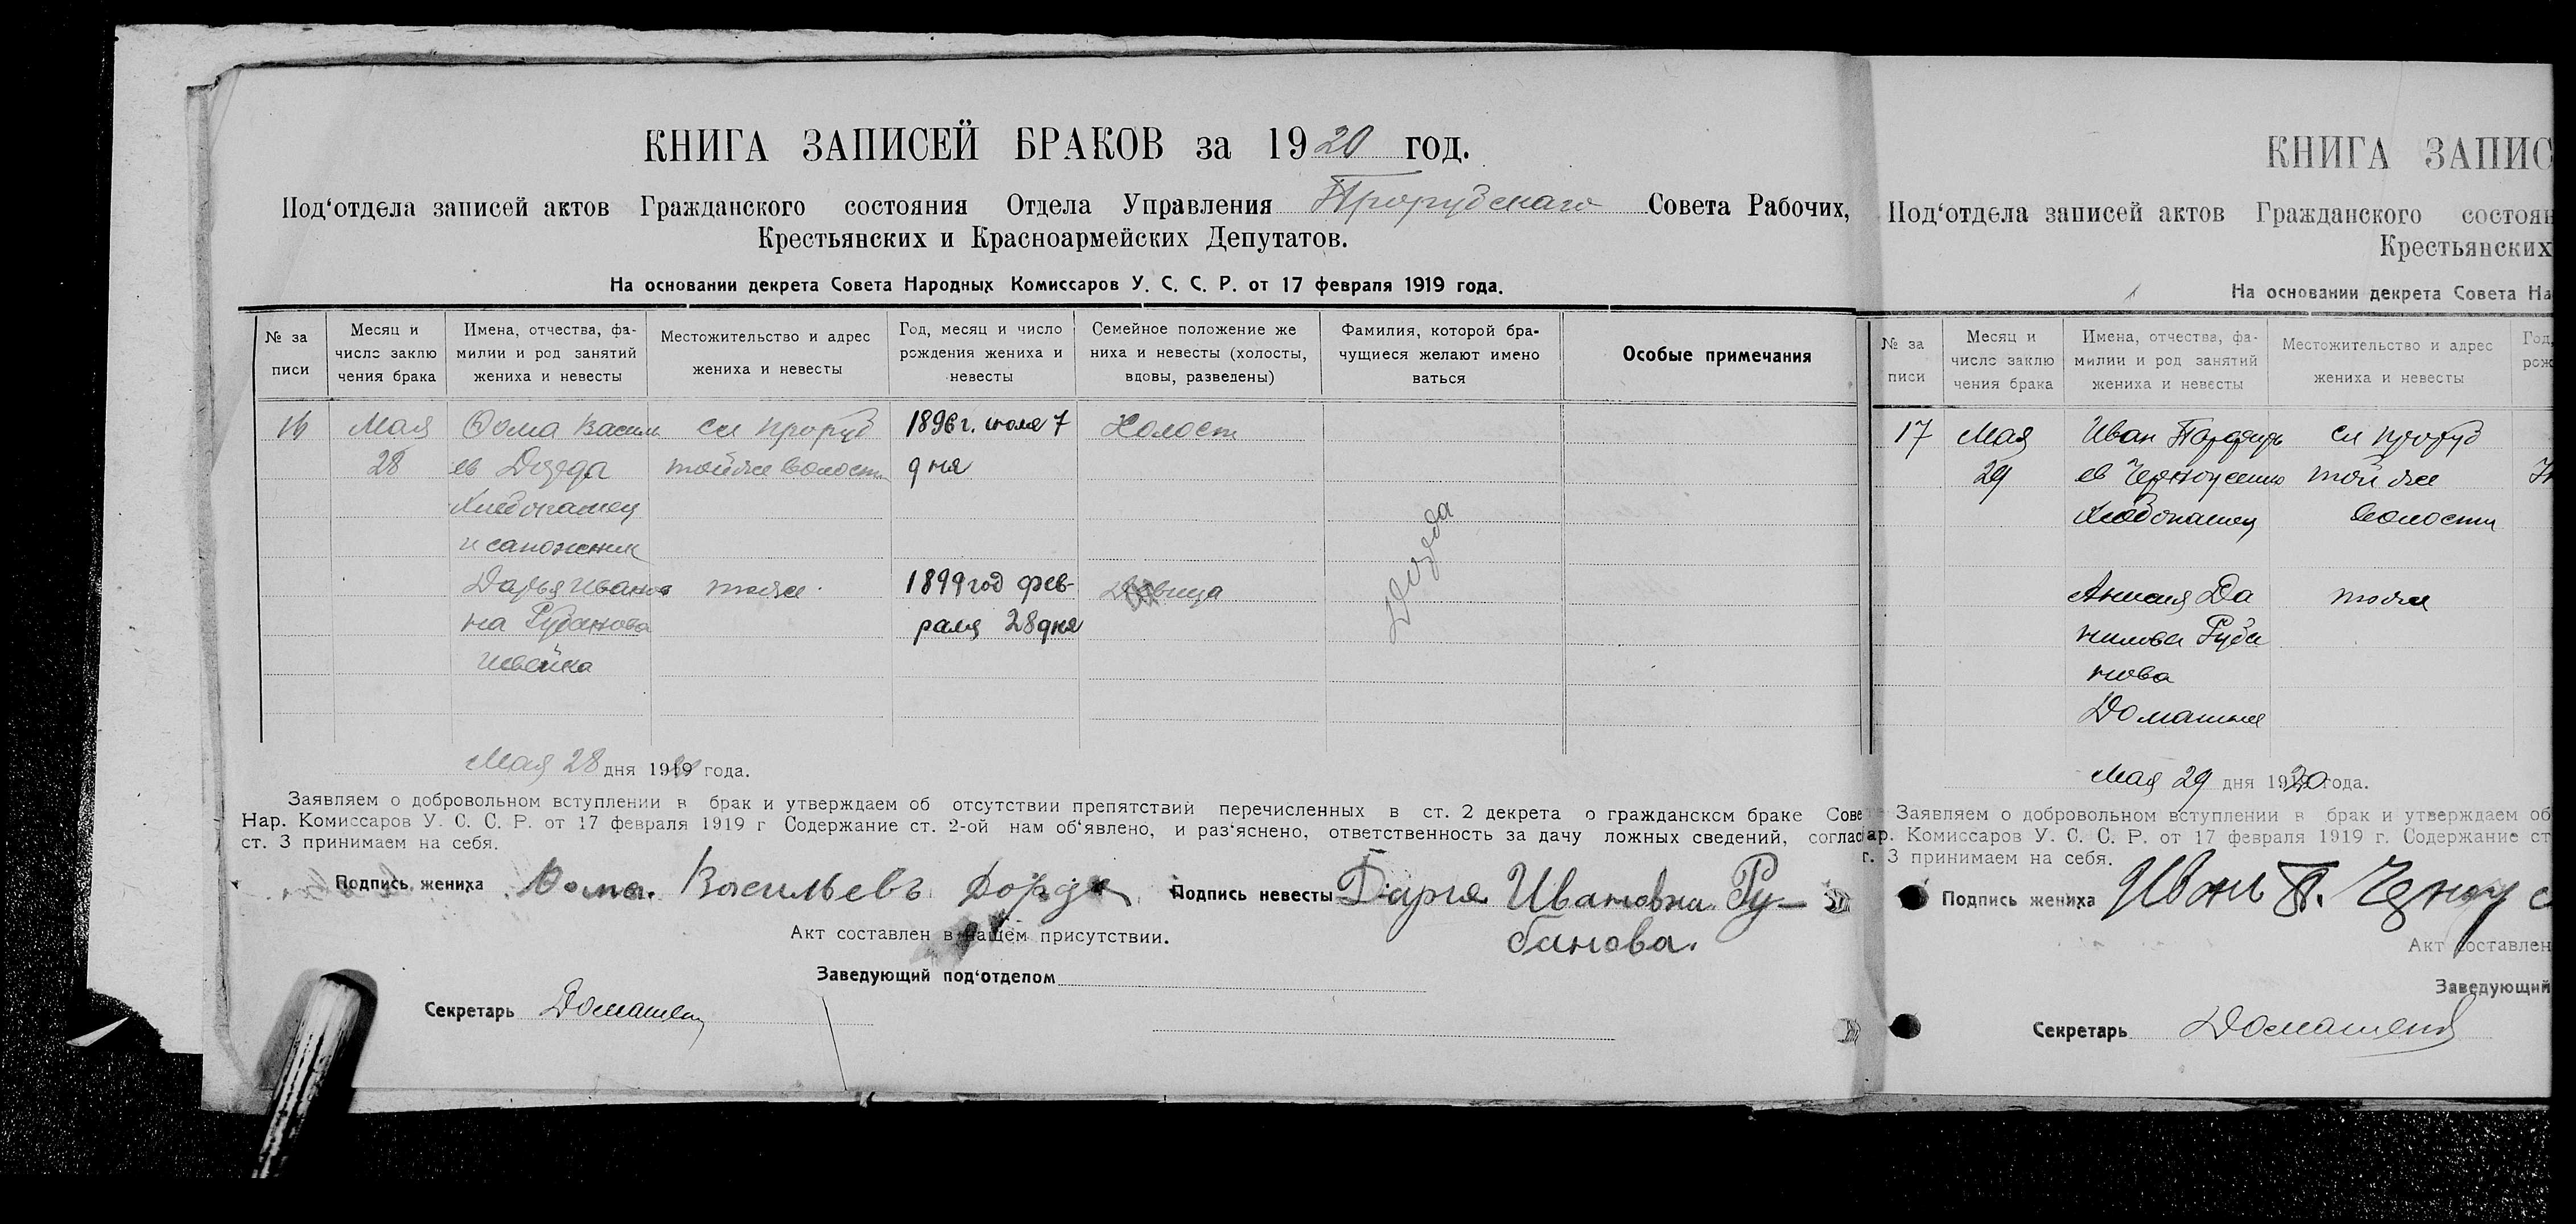 КНИГА ЗАПИСЕЙ БРАКОВ за 1920 год.
Под‘отдела записей актов Гражданского состояния Отдела Управления Прорубскаго Совета Рабочих,
Крестьянских и Красноармейских Депутатов.
На основании декрета Совета Народных Комиссаров У. С. С. Р. от 17 февраля 1919 года.
№ за
писи
Месяц и
число заклю
чения брака
Имена, отчества, фа-
милии и род занятий
жениха и невесты
Местожительство и адрес
жениха и невесты
Год, месяц и число
рождения жениха и
невесты
Семейное положение же
ниха и невесты (холосты,
вдовы, разведены)
Фамилия, которой бра-
чущиеся желают имено
ваться
Особые примечания
16 Мая Фома Васил сл Проруб 1896 г. июля 7 Холост
28 ев тойже волости дня
Хлебопашец
и сапожник
Дарья Иванов тоже 1899 год фев- Девица
на Рубанова раля 28 дня
швейка
Мая 28 дня 1920 года.
Заявляем о добровольном вступлении в брак и утверждаем об отсутствии препятствий перечисленных в ст. 2 декрета о гражданском браке Сове
Нар. Комиссаров У. С. С. Р. от 17 февраля 1919 г Содержание ст. 2-ой нам об‘явлено, и раз‘яснено, ответственность за дачу ложных сведений, соглас
ст. 3 принимаем на себя.
Подпись жениха Фома Васильевъ Подпись невесты Дария Ивановна Ру-
банова.
Акт составлен в нашем присутствии.
Заведующий под‘отделом
Секретарь
КНИГА ЗАПИС
Под‘отдела записей актов Гражданского состоян
Крестьянских
На основании декрета Совета На
№ за
писи
Месяц и
число заклю
чения брака
Имена, отчества, фа-
милии и род занятий
жениха и невесты
Местожительство и адрес
жениха и невесты
Год,
рож
17 Мая Иван сл Проруб
29 тойже
Хлебопашец волости
Анисия Да тоже
нилова Руба
нова
Домашняя
Мая 29 дня 1920 года.
Заявляем о добровольном вступлении в брак и утверждаем об
ар. Комиссаров У. С. С. Р. от 17 февраля 1919 г. Содержание ст
г. 3 принимаем на себя.
Подпись жениха Иванъ П.
Акт составлен
Заведующий
Секретарь